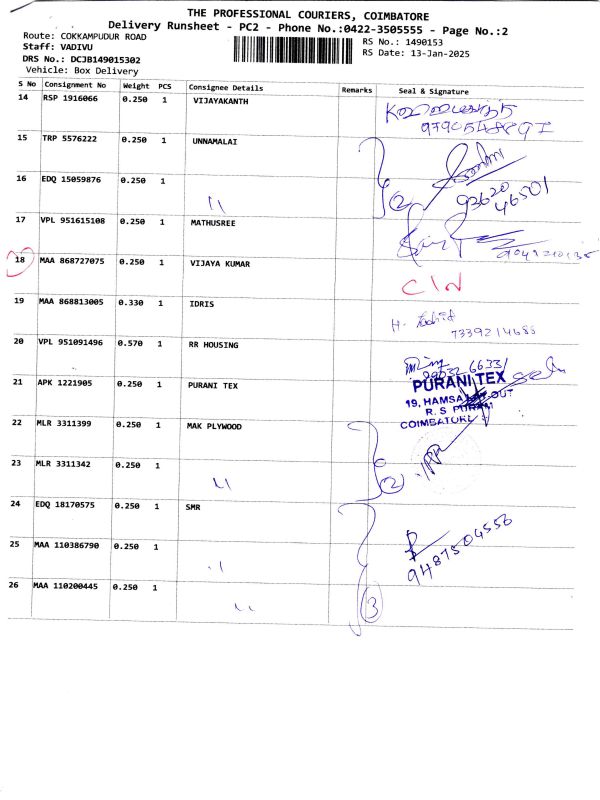 THE PROFESSIONAL COURIERS, COIMBATORE
Delivery Runsheet - PC2 - Phone No.:0422-3505555 - Page No.:2
Route: COKKAMPUDUR ROAD
RS No.: 1490153
Staff: VADIVU
RS Date: 13-Jan-2025
DRS No.: DCJB149015302
Vehicle: Box Delivery
S No Consignment No Weight PCS Consignee Details Remarks Seal & Signature
14 RSP 1916066 0.250 1 VIJAYAKANTH
15 TRP 5576222 0.250 1 UNNAMALAI
16 EDQ 15059876 0.250 1 〃 2 93620
46501
17 VPL 951615108 0.250 1 MATHUSREE
18 MAA 868727075 0.250 1 VIJAYA KUMAR C/N
19 MAA 868813005 0.330 1 IDRIS H.
7339214688
20 VPL 951091496 0.570 1 RR HOUSING
21 APK 1221905 0.250 1 PURANI TEX PURANI TEX
19, HAMSA OUT
R. S PURAM
COIMBATORE
22 MLR 3311399 0.250 1 MAK PLYWOOD
23 MLR 3311342 0.250 1 〃 2
24 EDQ 18170575 0.250 1 SMR
25 MAA 110386790 0.250 1 〃 9487504556
26 MAA 110200445 0.250 1 〃 3